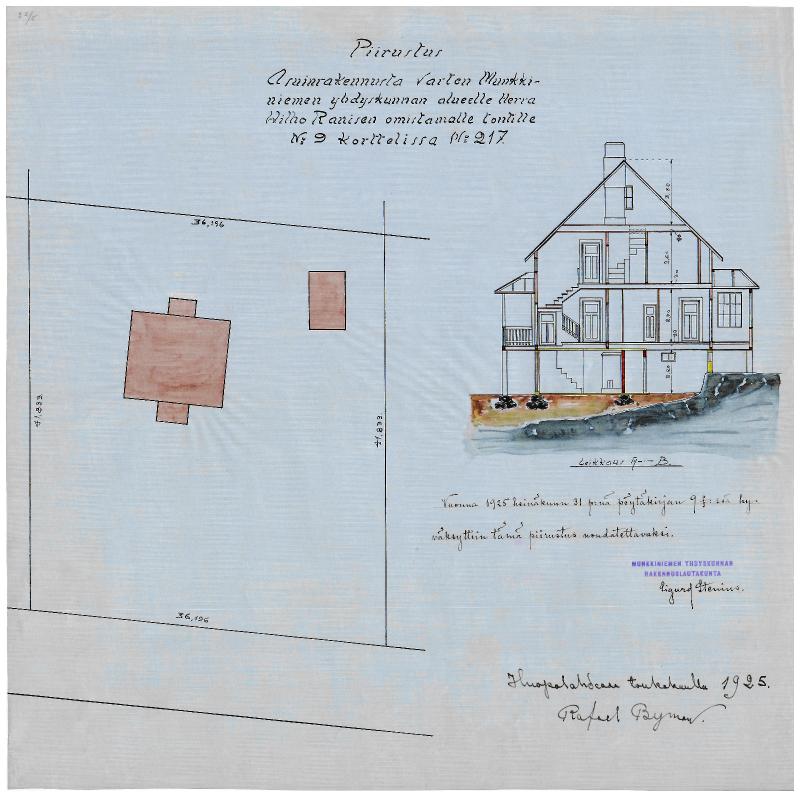 Piirustus
Asuinrakennusta varten Munkki-
niemen yhdyskunnan alueelle Herra
Wilho Ranisen omistamalle tontille
No 9 Korttelissa No 217.
36,196
41,833
41,833
36,196
Leikkaus A-B.
Vuonna 1925 heinäkuun 31 p:nä pöytäkirjan 9 §:ssä hy-
väksyttiin tämä piirustus noudatettavaksi.
MUNKKINIEMEN YHDYSKUNNAN
RAKENNUSLAUTAKUNTA
Sigurd Stenius.
Huopalahdessa toukokuulla 1925.
Rafael Byman.